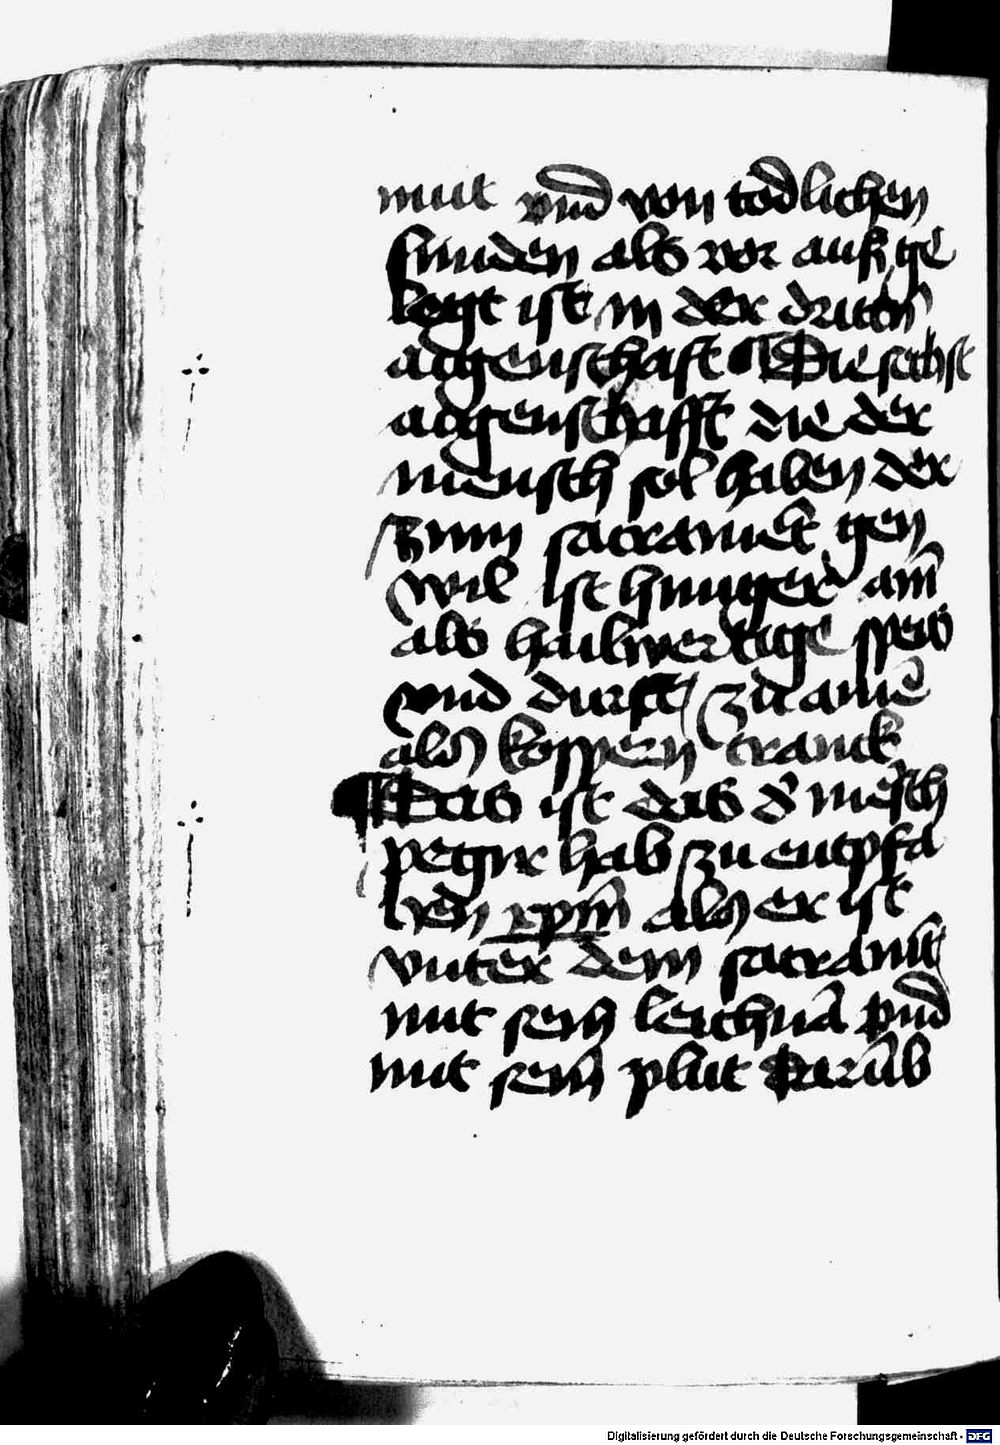 mut vnd von todlichen
sunden als vor auß ge
legt ist in der drittn̄
aigenschaft Die sechst
aigenschafft die der
mensch sol haben der
zum sacramēt gen
wil ist hunger am̄
als hailwertige speis
vnd durst zu ainē
als kospern tranck
Das ist das d' mēsch
pegir hab zu entpfa
hen xpm̄ als er ist
vnter dem sacramēt
mit sein leichnā vnd
mit sein̄ plut Darūb
Digitalisierung gefördert durch die Deutsche Forschungsgemeinschaft - DFG